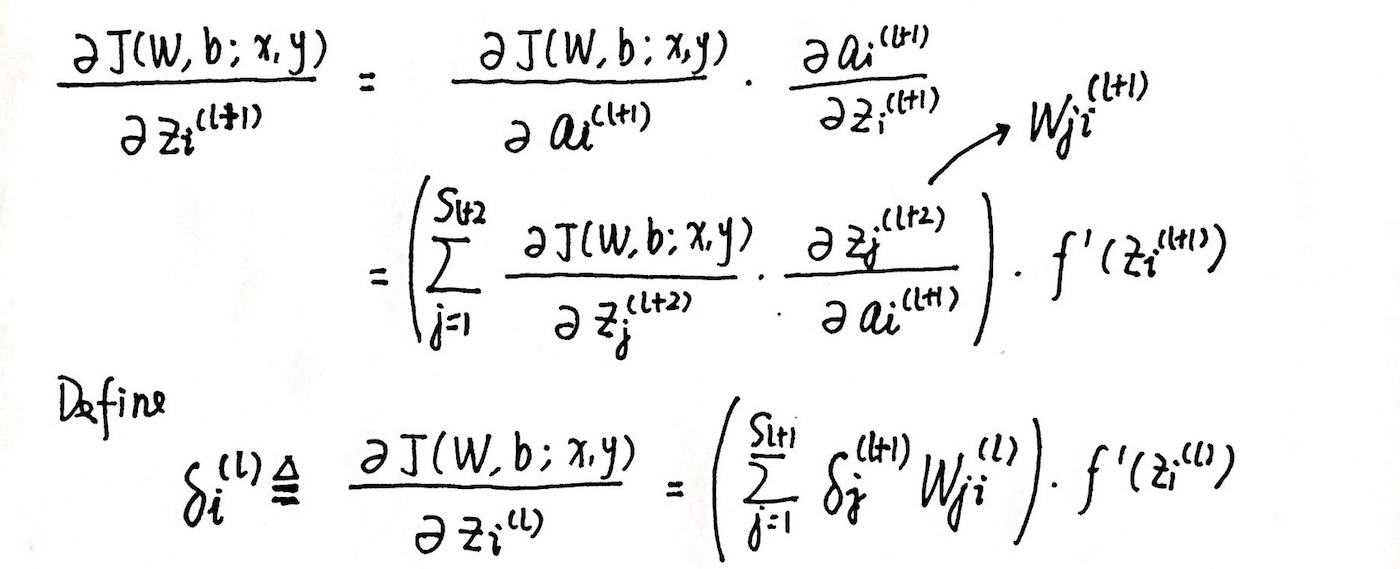 ∂J(W,b;x,y) / ∂z_i^(l+1) = ∂J(W,b;x,y) / ∂a_i^(l+1) · ∂a_i^(l+1) / ∂z_i^(l+1)
→ W_ji^(l+1)
= ( ∑_{j=1}^{S_{l+2}} ∂J(W,b;x,y) / ∂z_j^(l+2) · ∂z_j^(l+2) / ∂a_i^(l+1) ) · f'(z_i^(l+1))
Define
δ_i^(l) ≜ ∂J(W,b;x,y) / ∂z_i^(l) = ( ∑_{j=1}^{S_{l+1}} δ_j^(l+1) W_ji^(l) ) · f'(z_i^(l))